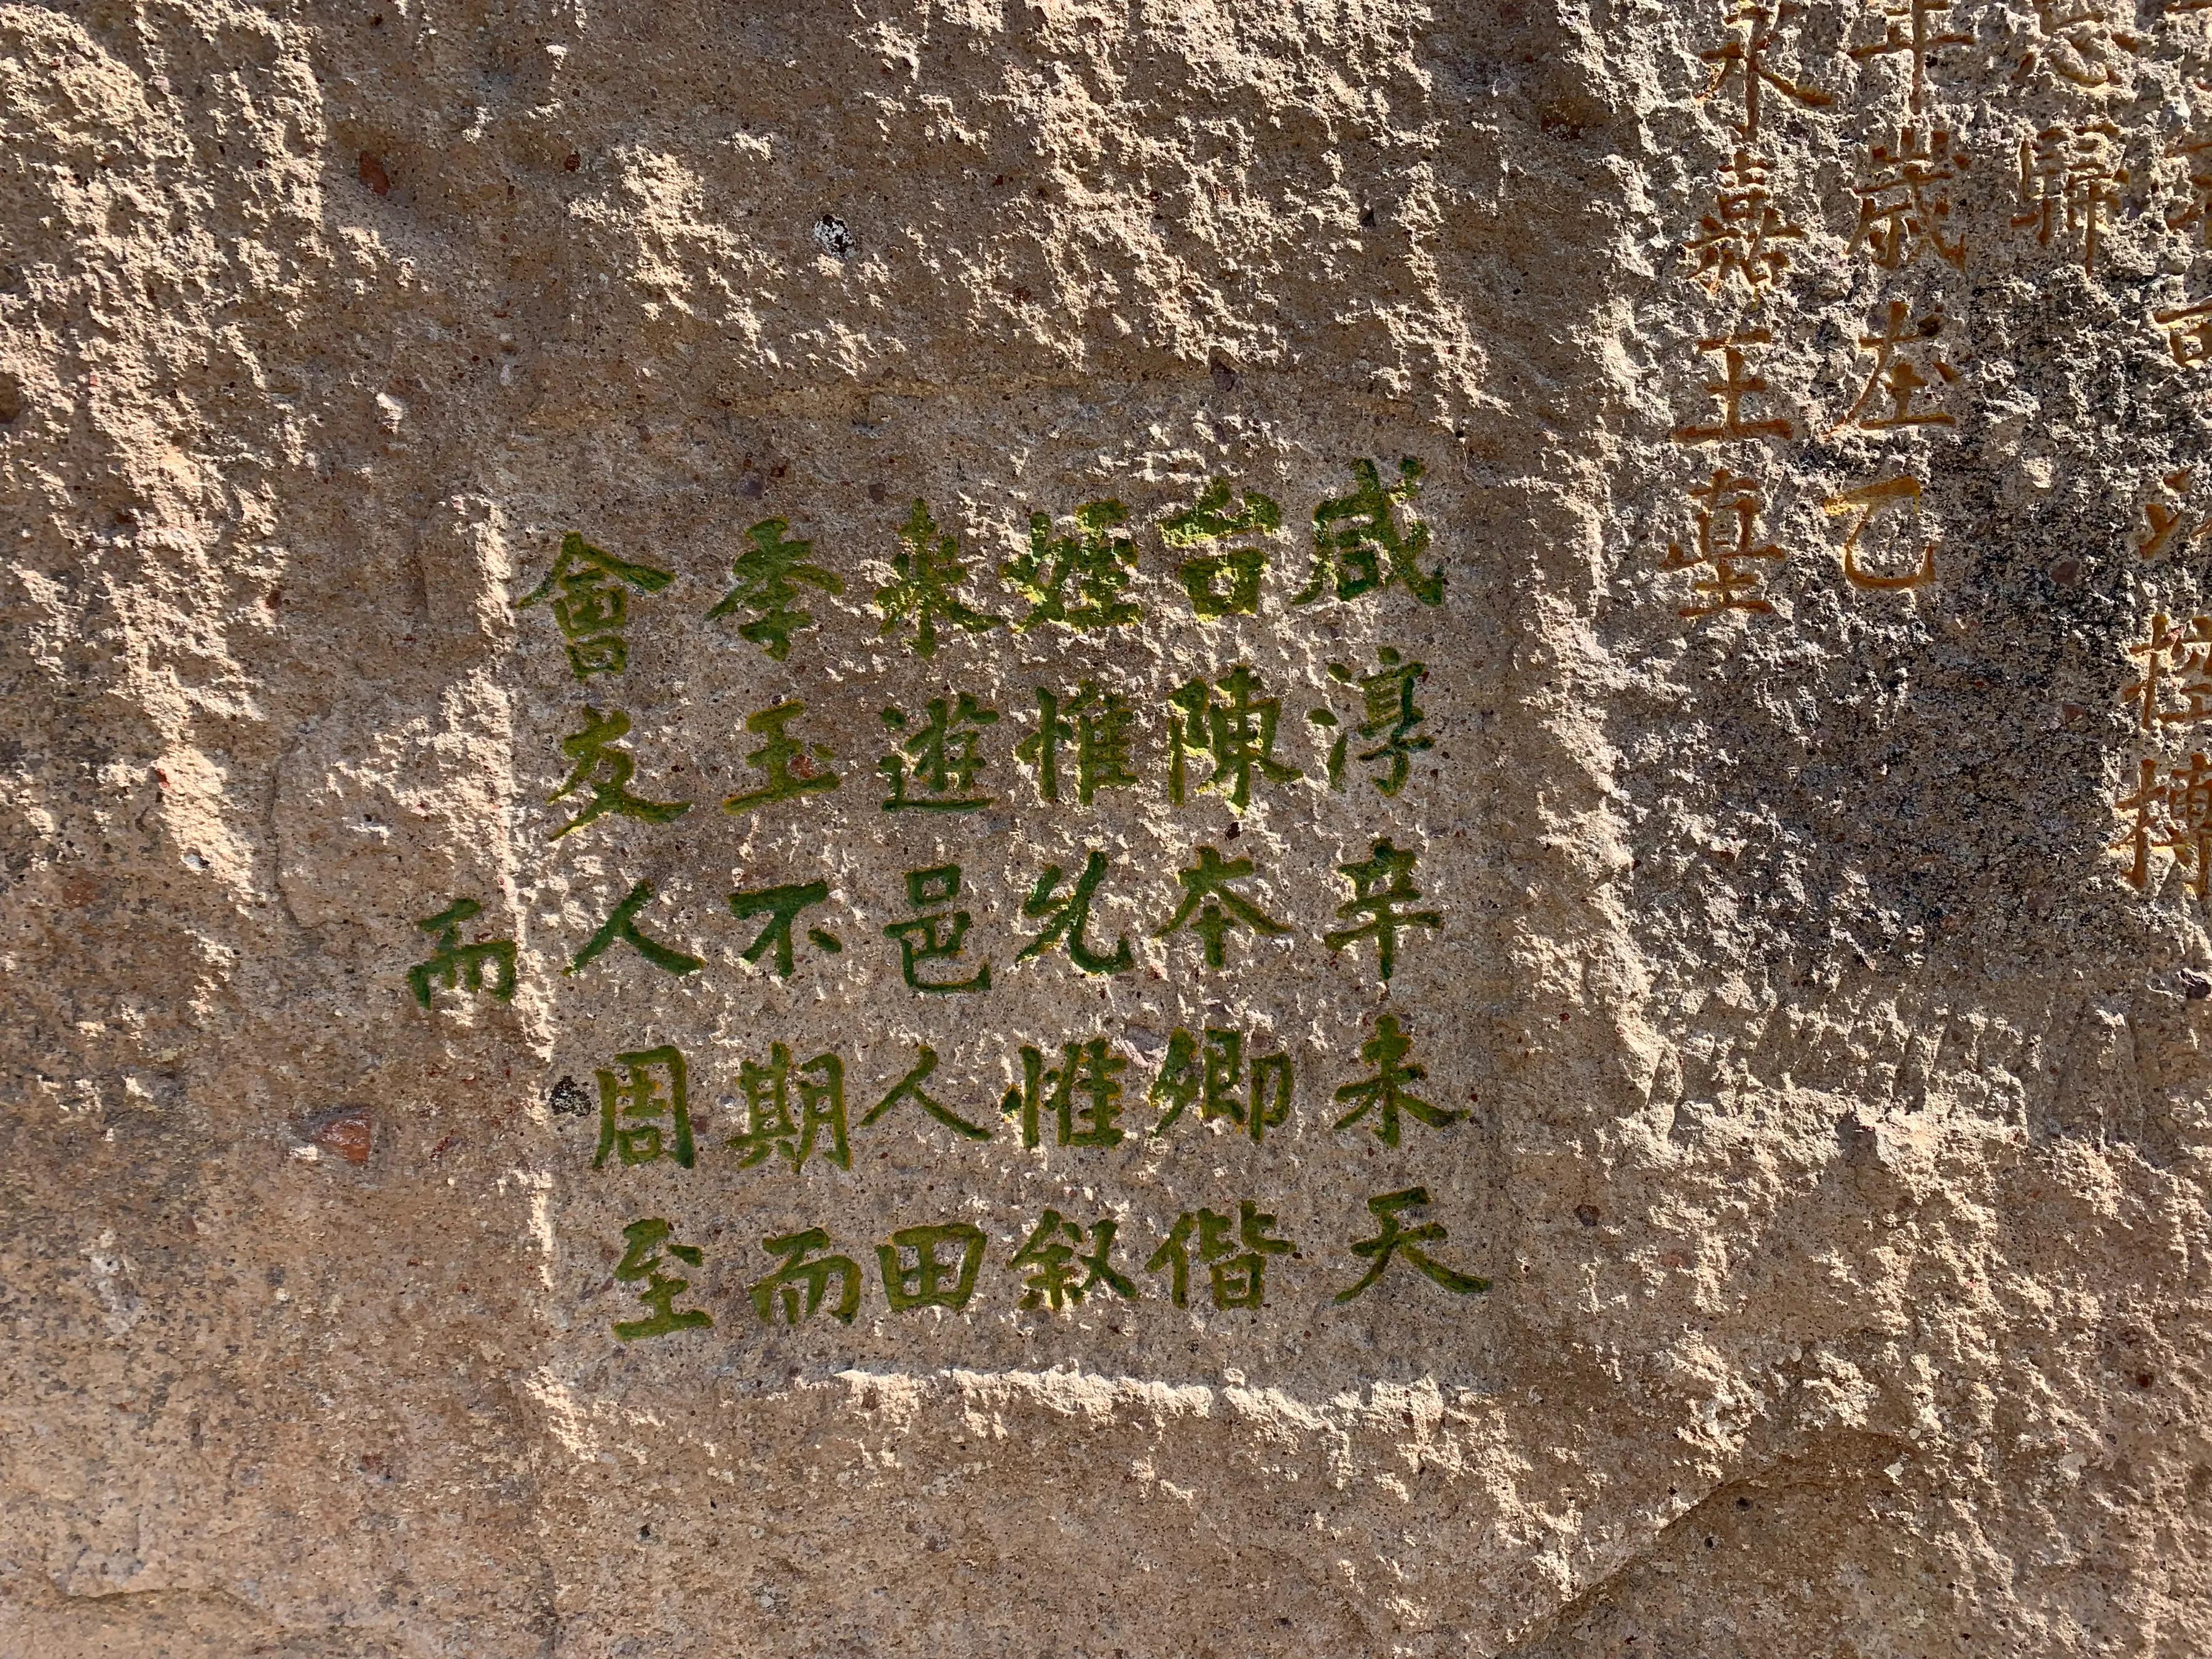 忘歸
年歲在乙
永嘉王堇
咸淳辛未天
台陳本卿偕
姪惟允惟叙
來遊邑人田
季玉不期而
會友人周至
而